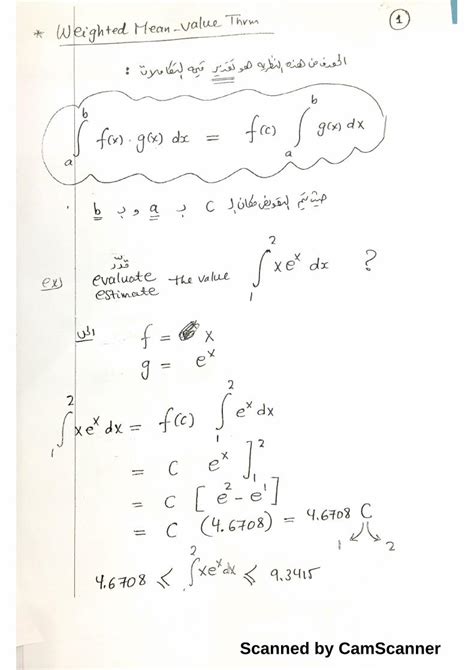 * Weighted Mean-value Thrm
1
الهدف من هذه النظرية هو تقدير قيم التكاملات :
∫_a^b f(x) · g(x) dx = f(c) ∫_a^b g(x) dx
حيث يتم التعويض مكان الـ C بـ a و بـ b .
ex) evaluate the value ∫_1^2 x e^x dx ?
قدّر
estimate
الحل
f = x
g = e^x
∫_1^2 x e^x dx = f(c) ∫_1^2 e^x dx
= C e^x ]_1^2
= C [ e^2 - e^1 ]
= C (4.6708) = 4.6708 C
1 2
4.6708 ≤ ∫_1^2 x e^x dx ≤ 9.3415
Scanned by CamScanner